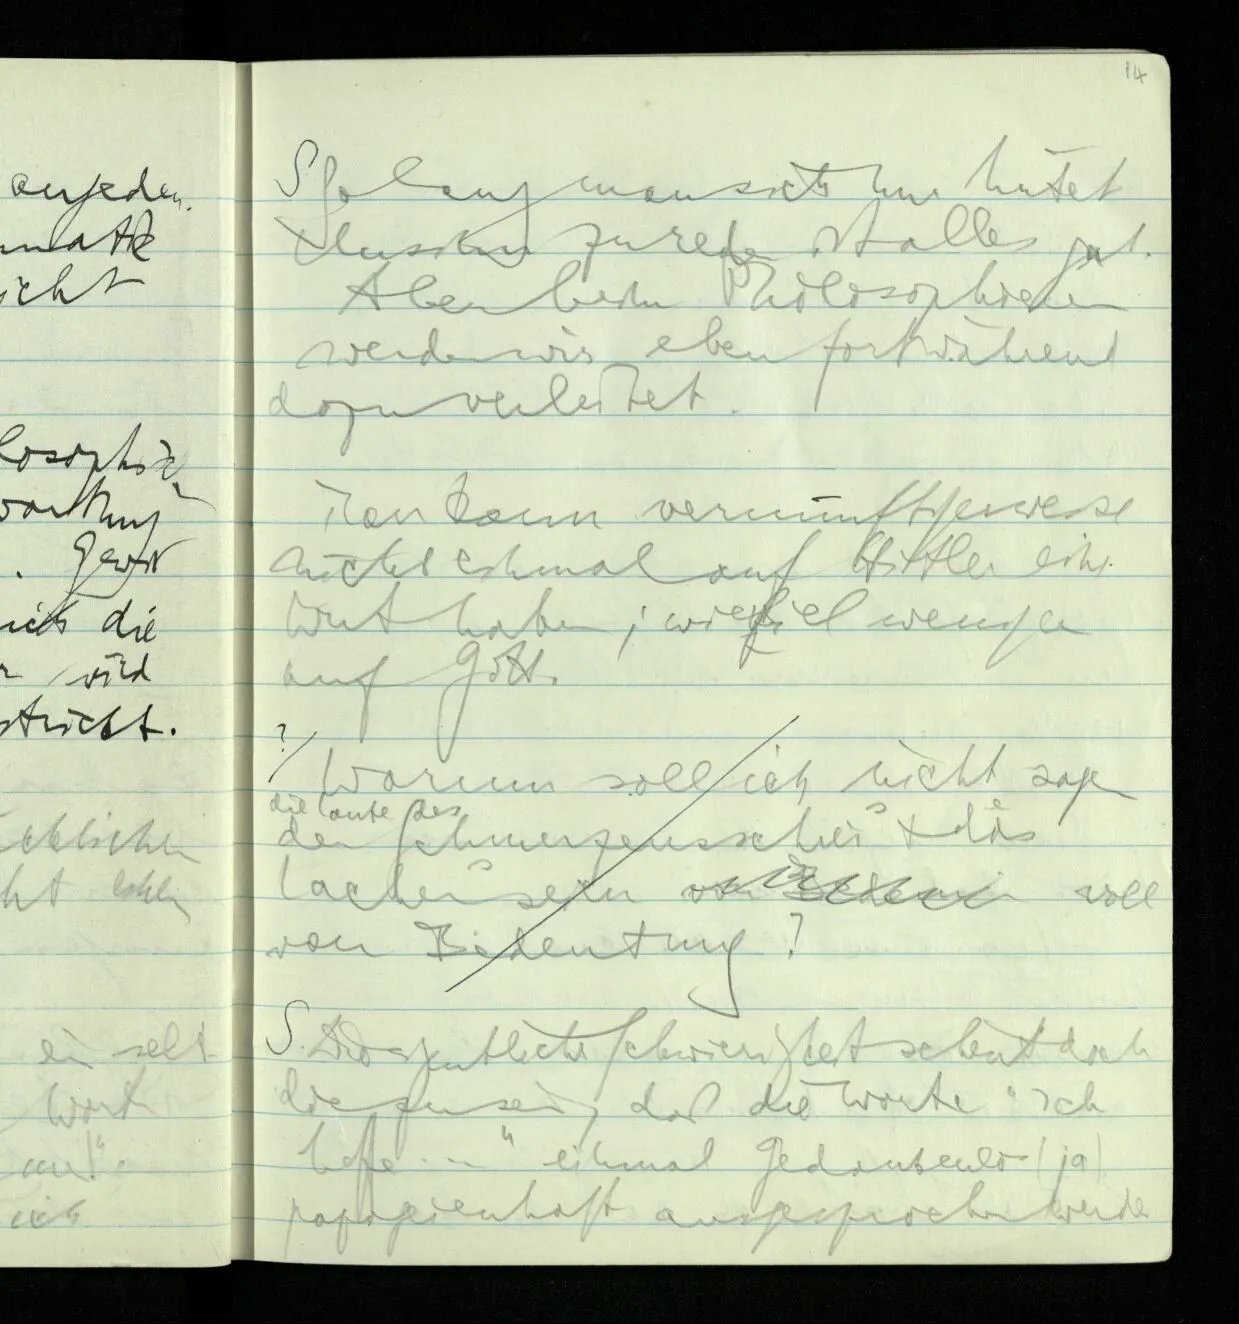 anjeden.
icht
losophie
wortung
. Gewiß
mich die
r wird
stricht.
cklichen
ht
ein selt
Wort
14
S Solang man sich nur hütet
Unsinn zu reden ist alles gut.
Aber beim Philosophieren
werden wir eben fortwährend
dazu verleitet.
Man kann vernünftigerweise
nicht einmal auf Hitler eine
Wut haben; wieviel weniger
auf Gott.
?/ Warum soll ich nicht sagen
die Laute des
der Schmerzensschrei & das
Lachen seien voll
von Bedeutung?
S. Die eigentliche Schwierigkeit scheint doch
die zu sein, daß die Worte "ich
hoffe ..." einmal gedankenlos (ja
papageienhaft ausgesprochen werden